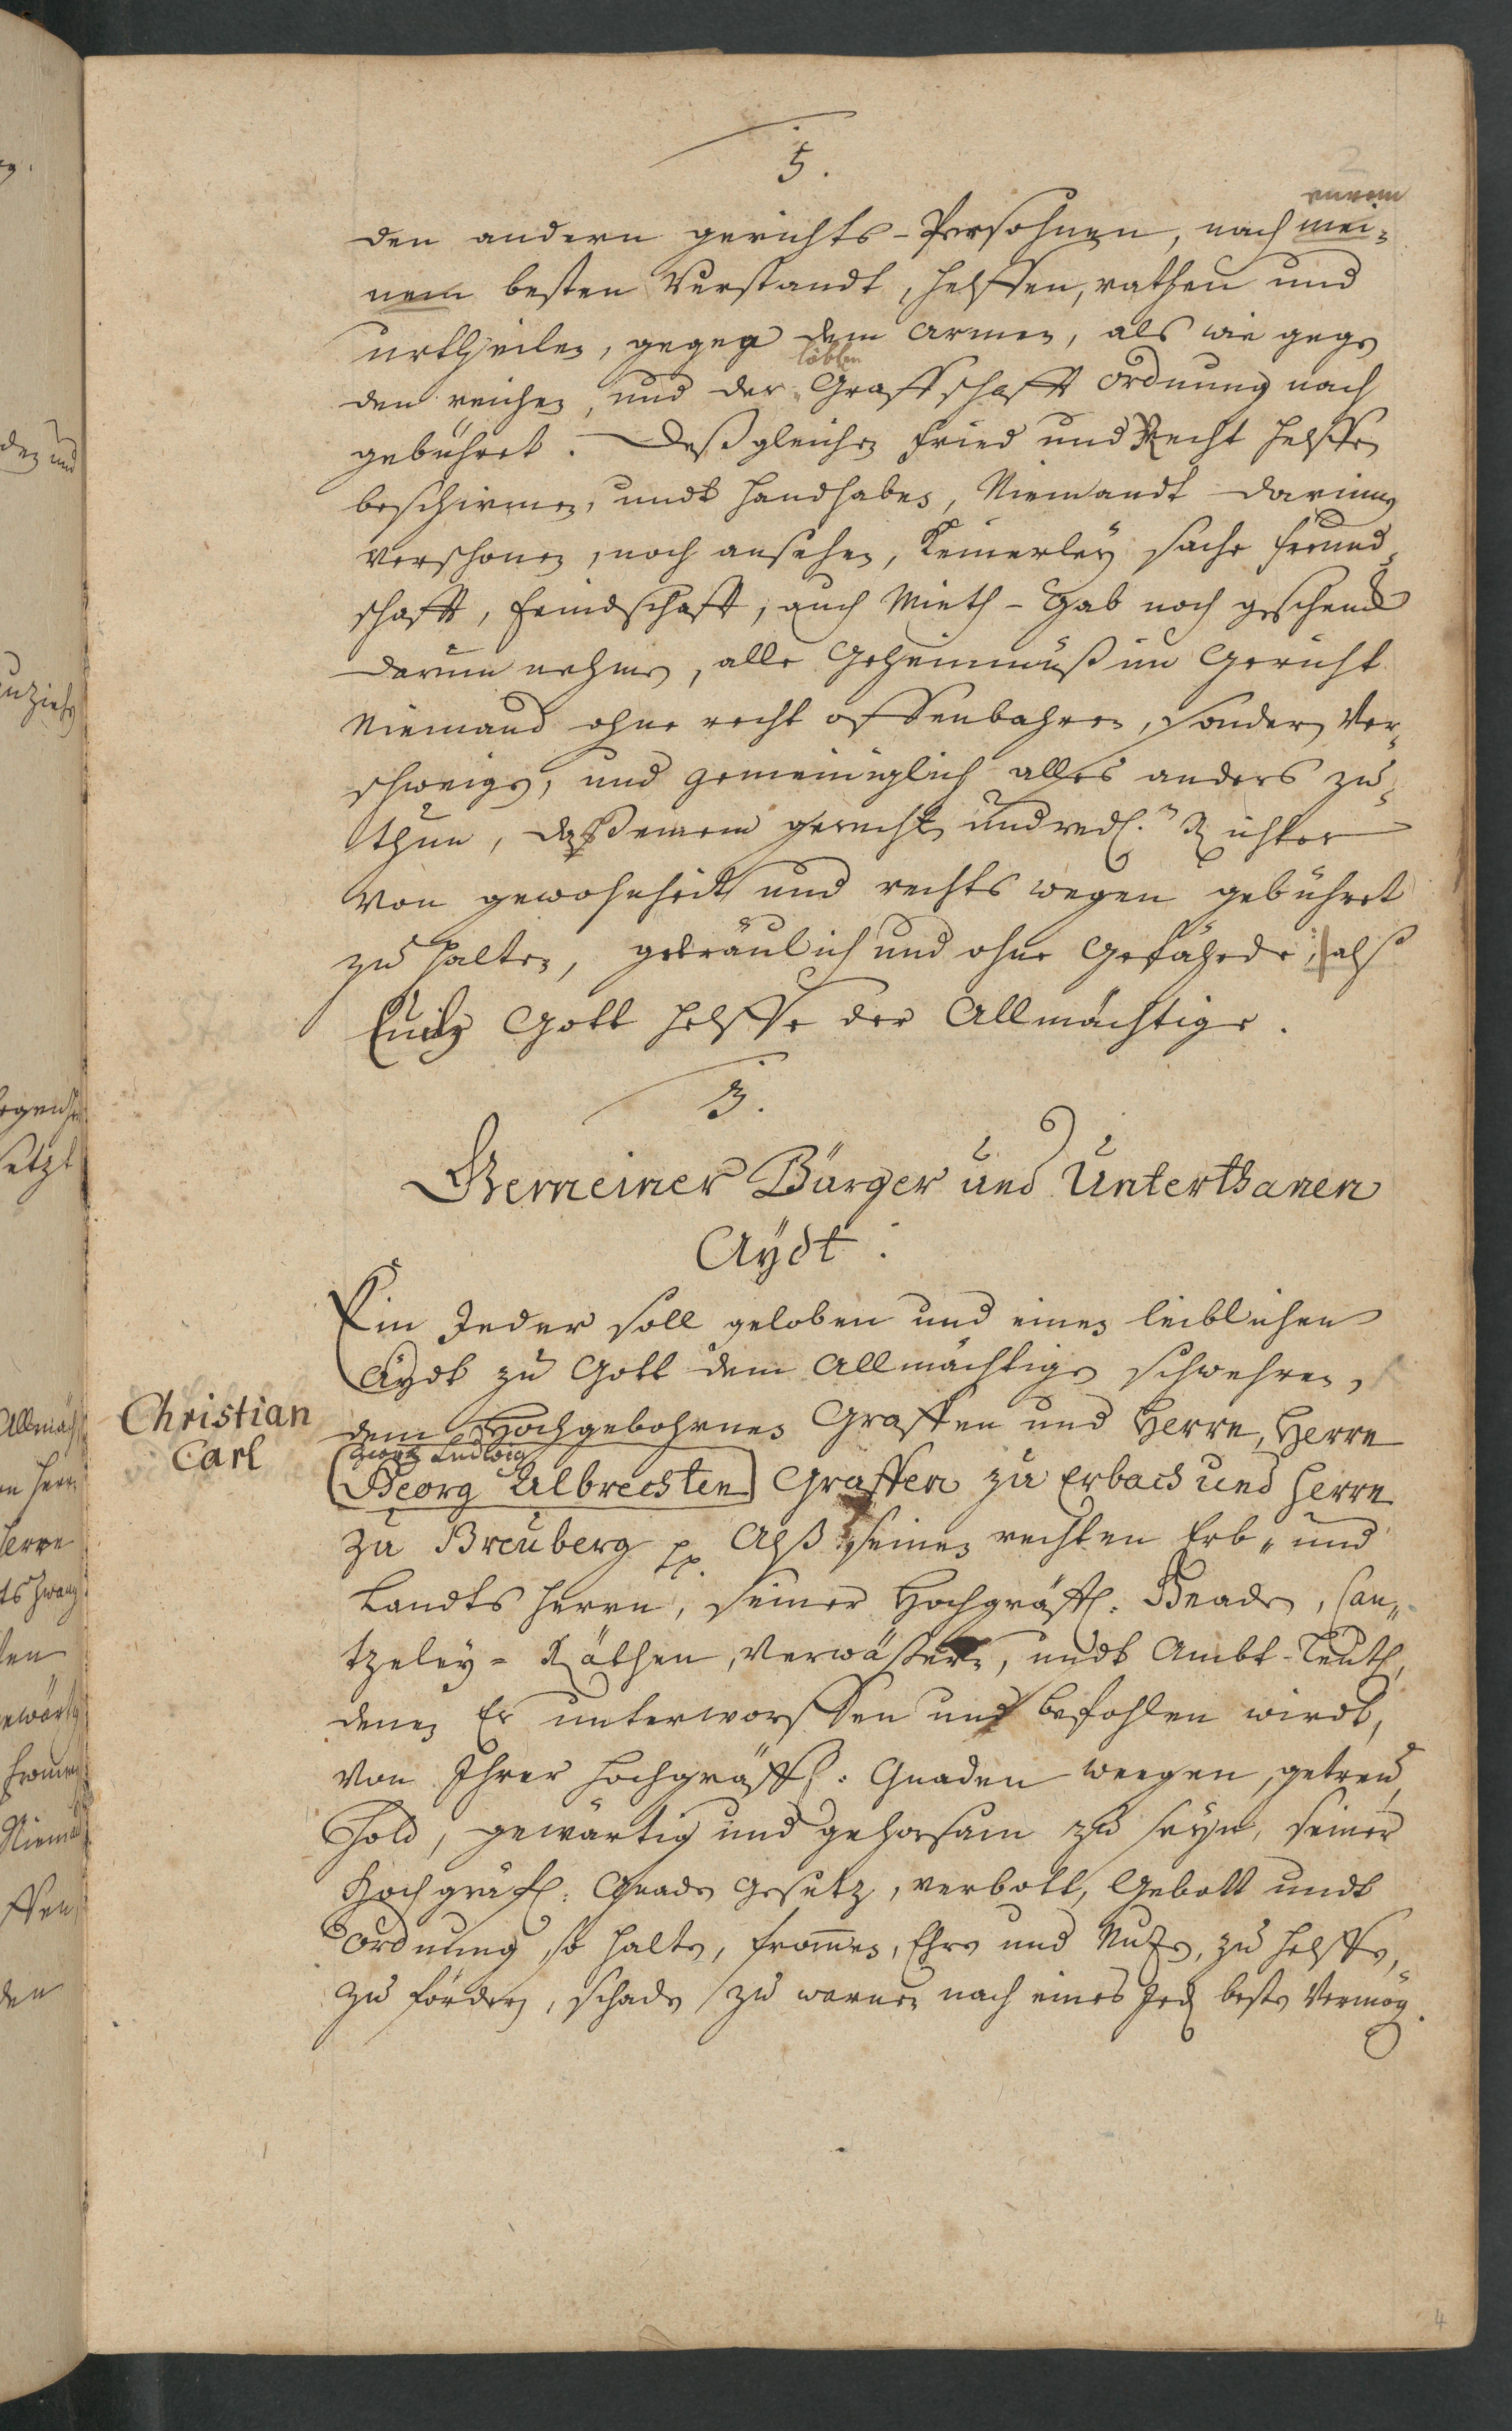 5.
2
eurem
den andern gerichts-Persohnen, nach mei-
nem besten Verstandt, helffen, rathen und
urtheilen, gegen dem armen, als wie gegen
löbln
den reichen, und der Graffschafft ordnung nach
gebühret. Deßgleichen Fried und Recht helffen
beschirmen, undt handhaben, Niemandt darinnen
verschonen, noch ansehen, Keinerley sache freund-
schafft, feindschafft, auch Mieth-Gab noch geschenck
darum nehmen, alle Geheimnüß im Gericht
Niemand ohne recht offenbahren, sondern Ver-
schweigen, und gemeiniglich alles anders zu-
thun, daß einem gerechten und redl. Richter
von gewohnheit und rechts wegen gebühret
zu halten, geträulich und ohne Gefährde, alß
Euch Gott helffe der Allmächtige.
3.
Gemeiner Bürger und Unterthanen
Aydt.
Ein Jeder soll geloben und einen leiblichen
Aydt zu Gott dem Allmächtigen schwehren,
Christian
Carl
dem Hochgebohrnen Graffen und Herrn, Herrn
Georg Ludwig
Georg Albrechten Graffen zu Erbach und Herrn
zu Breuberg pp. Alß seinen rechten Erb- und
Landts Herrn, seiner Hochgräffl. Gnaden, Can-
tzeley-Räthen, Verwäsern, undt Ambt-Leuth,
denen Er unterworffen und befohlen wirdt,
von Ihrer Hochgräffl. Gnaden weegen, getreu,
Hold, gewärtig und gehorsam zu seyn, seiner
Hochgräfl. Gnaden Gesetz, verbott, Gebott undt
ordnung, so halten, frommen, Ehre und Nutzen, zu helffen,
zu fördern, schaden zu warnen nach eines Jeden besten Vermög.
4